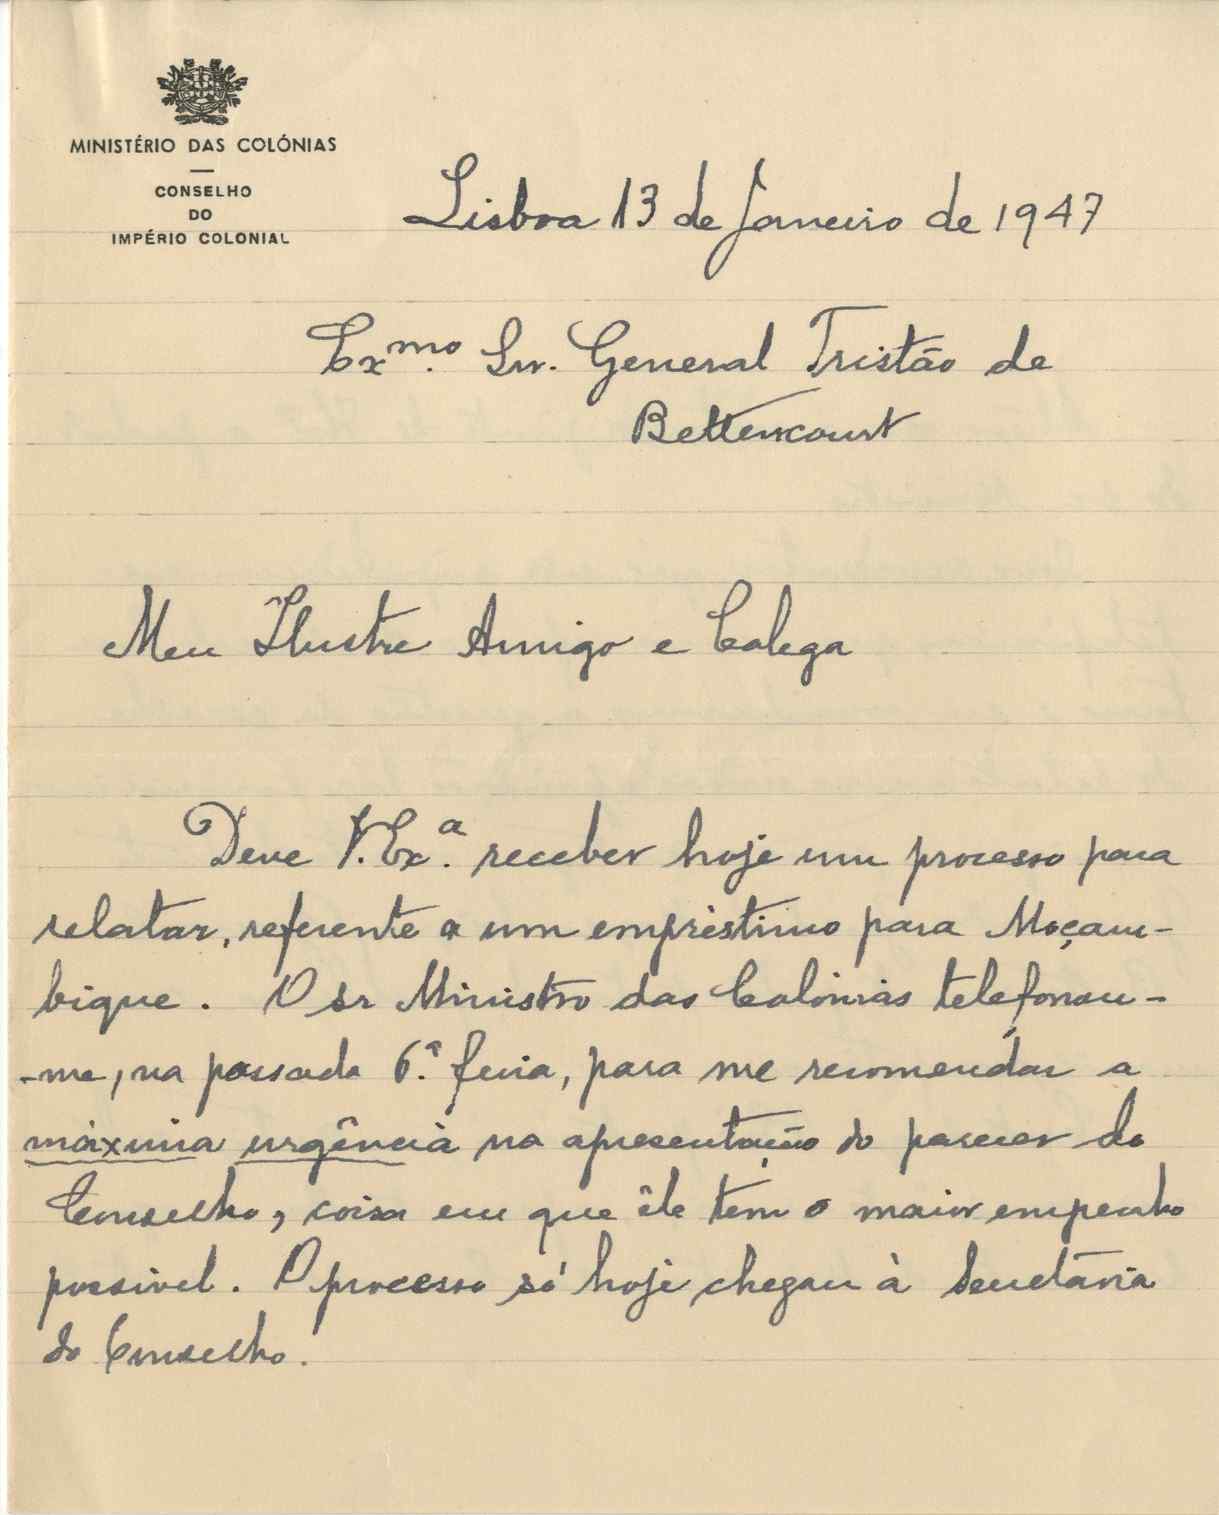 MINISTÉRIO DAS COLÓNIAS
CONSELHO
DO
IMPÉRIO COLONIAL
Lisboa 13 de Janeiro de 1947
Exmo. Snr. General Tristão de
Bettencourt
Meu Ilustre Amigo e Colega
Deve V. Exª. receber hoje um processo para
relatar, referente a um empréstimo para Moçam-
bique. O sr Ministro das Colónias telefonou-
-me, na passada 6.ª feira, para me recomendar a
máxima urgência na apresentação do parecer do
Conselho, coisa em que êle tem o maior empenho
possivel. O processo só hoje chegou à Secretária
do Conselho.